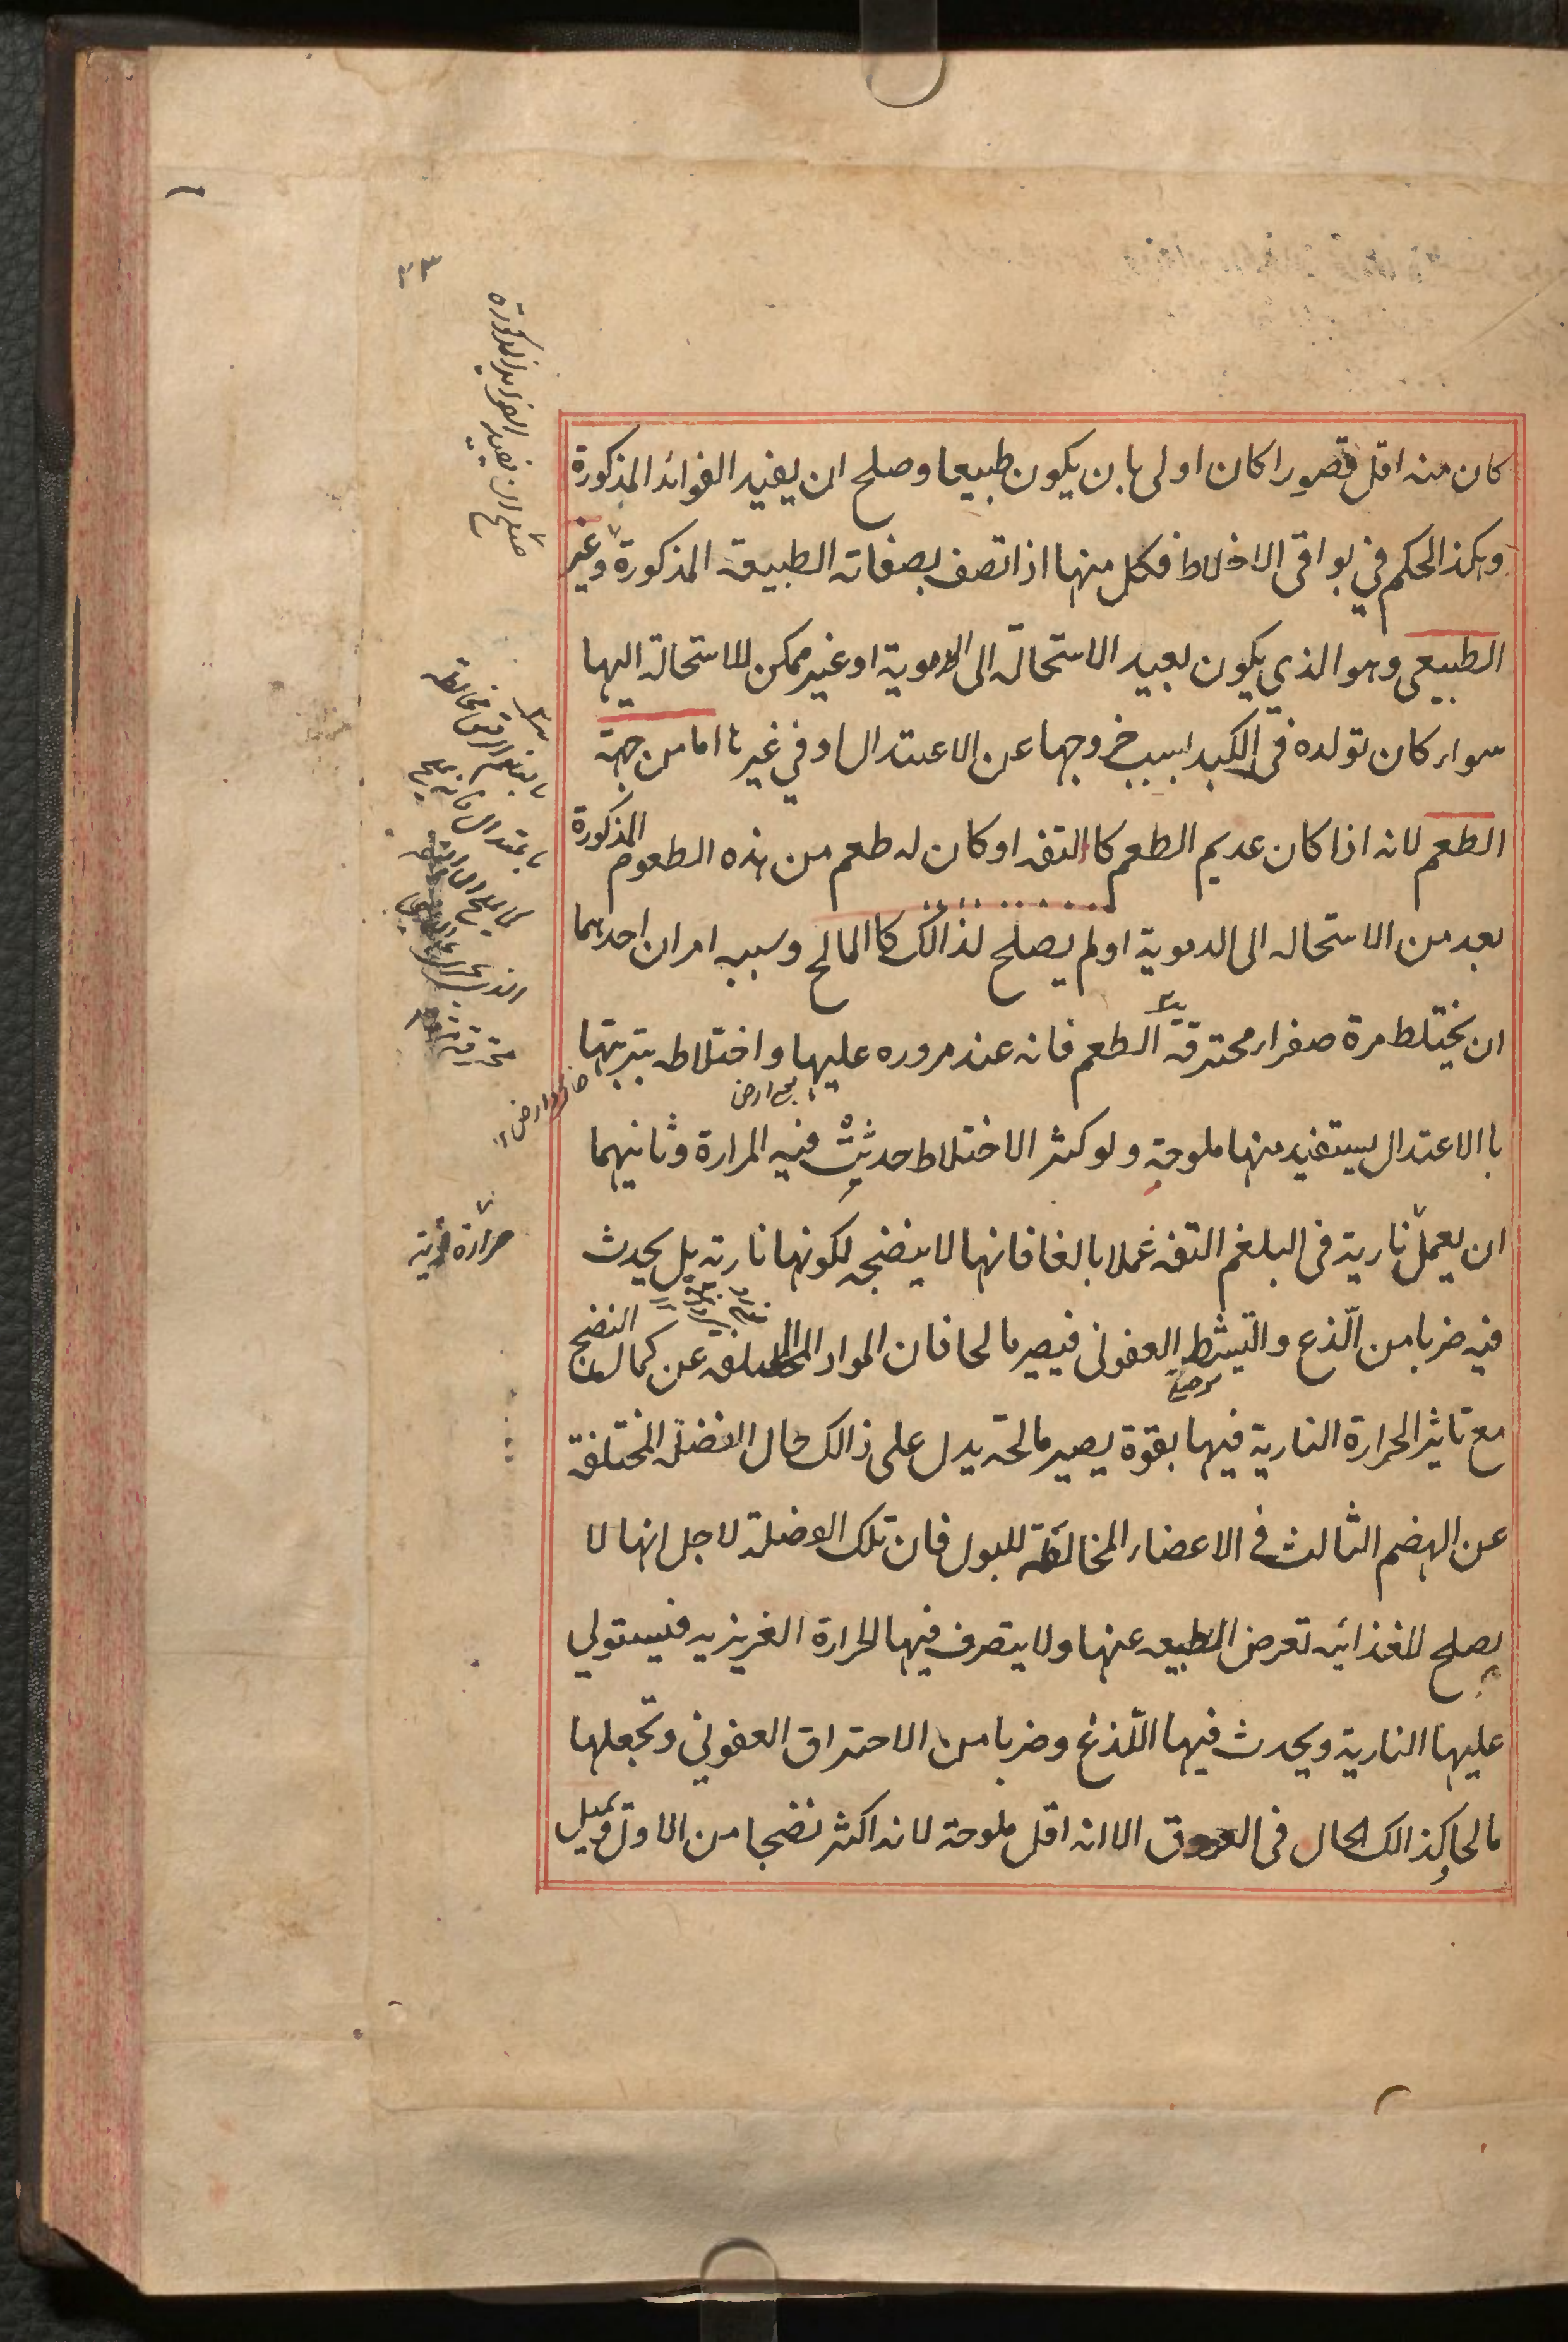 ٢٣
صلح ان يفيد الفوايد المذكورة
كان منه اقل قصورا كان اولى بان يكون طبيعا وصلح ان يفيد الفوائد المذكورة
وهكذ الحكم في بواقى الاخلاط فكل منها اذا اتصف بصفات الطبيعة المذكورة وغير
الطبيعى وهو الذي يكون بعيد الاستحالة الى الدموية او غير ممكن للاستحالة اليها
سواء كان تولده فى الكبد بسبب خروجها عن الاعتدال او في غيرها اما من جهة
الطعم لانه اذا كان عديم الطعم كا التفه او كان له طعم من هذه الطعوم المذكورة
بعد من الاستحاله الى الدموية او لم يصلح لذالك كا المالح وسببه امران احدهما
ان يختلط مرة صفراء محترقة الطعم فانه عند مروره عليها واختلاطه بتربتها
با الاعتدال يستفيد منها ملوحة ولو كثر الاختلاط حدثت فيه المرارة وثانيهما
حرارة نارية
ان يعمل نارية فى البلغم التفه عملا بالغا فانها لا ينضجه لكونها نارية بل يحدث
فيه ضربا من الّذع والتيشط العفونى فيصير مالحا فان المواد عن كمال النضج
مع تاثير الحرارة النارية فيها بقوة يصير مالحة يدل على ذالك حال الفضلة المختلفة
عن الهضم الثالث فى الاعضاء المخالفة للبول فان تلك الفضلة لاجل انها لا
يصلح للغذائيه تعرض الطبيعه عنها ولا يتصرف فيها الحرارة الغريزيه فيستولي
عليها النارية ويحدث فيها اللّذع وضربا من الاحتراق العفوني وتجعلها
مالحا وكذالك الحال فى العروق الا انه اقل ملوحة لانه اكثر نضجا من الاول وتميل